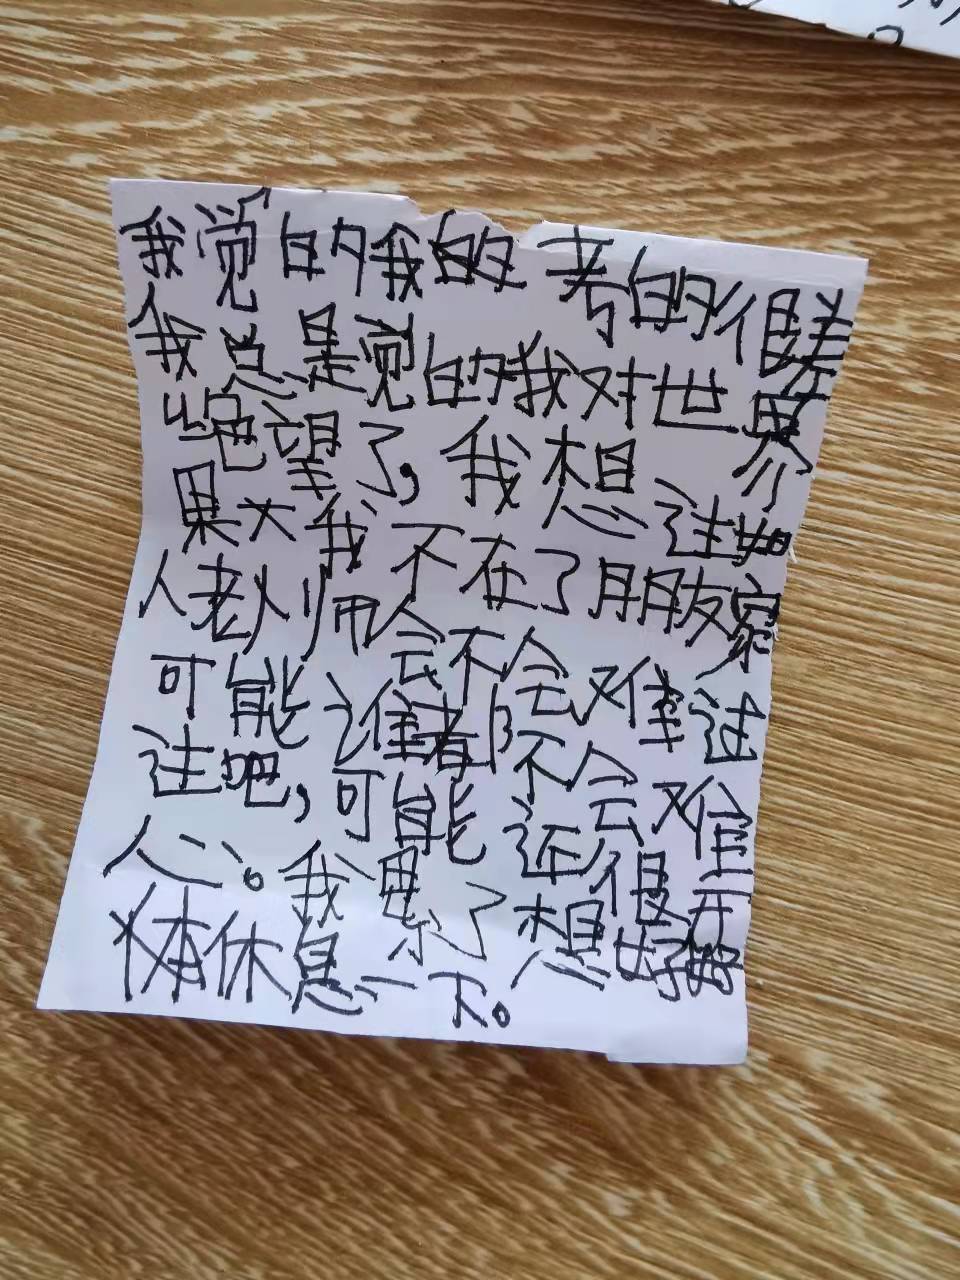 我觉的我的考的很差
我总是觉的我对世界
绝望了，我想过如
果我不在了朋友家
人老师会不会难过
可能谁都不会难
过吧，可能还会很开
心。我累了想好好
体休息一下。